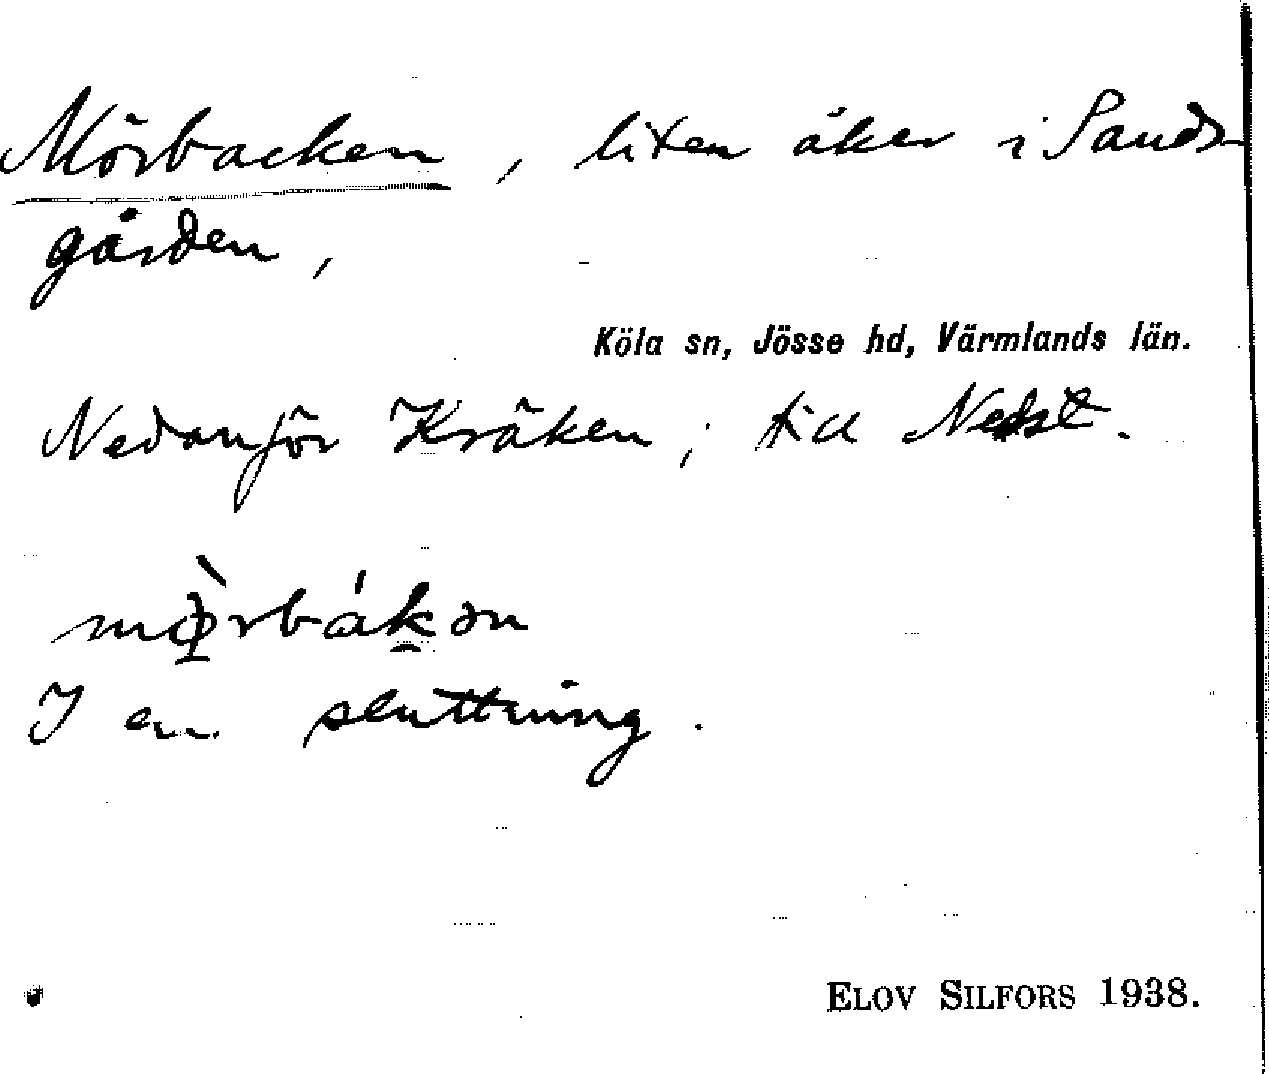 Mörbacken, liten åker i Sands-
gården,
Köla sn, Jösse hd, Värmlands län.
Nedanför Kråken; till Nedst.
mø̀rbákən
I en sluttning.
ELOV SILFORS 1938.